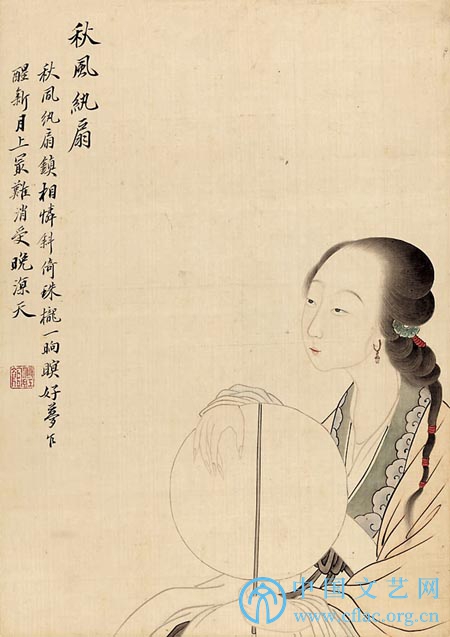 秋風紈扇
秋風紈扇鎮相憐斜倚珠櫳一晌暝好夢乍
醒新月上最難消受晚涼天
中国文艺网
www.cflac.org.cn